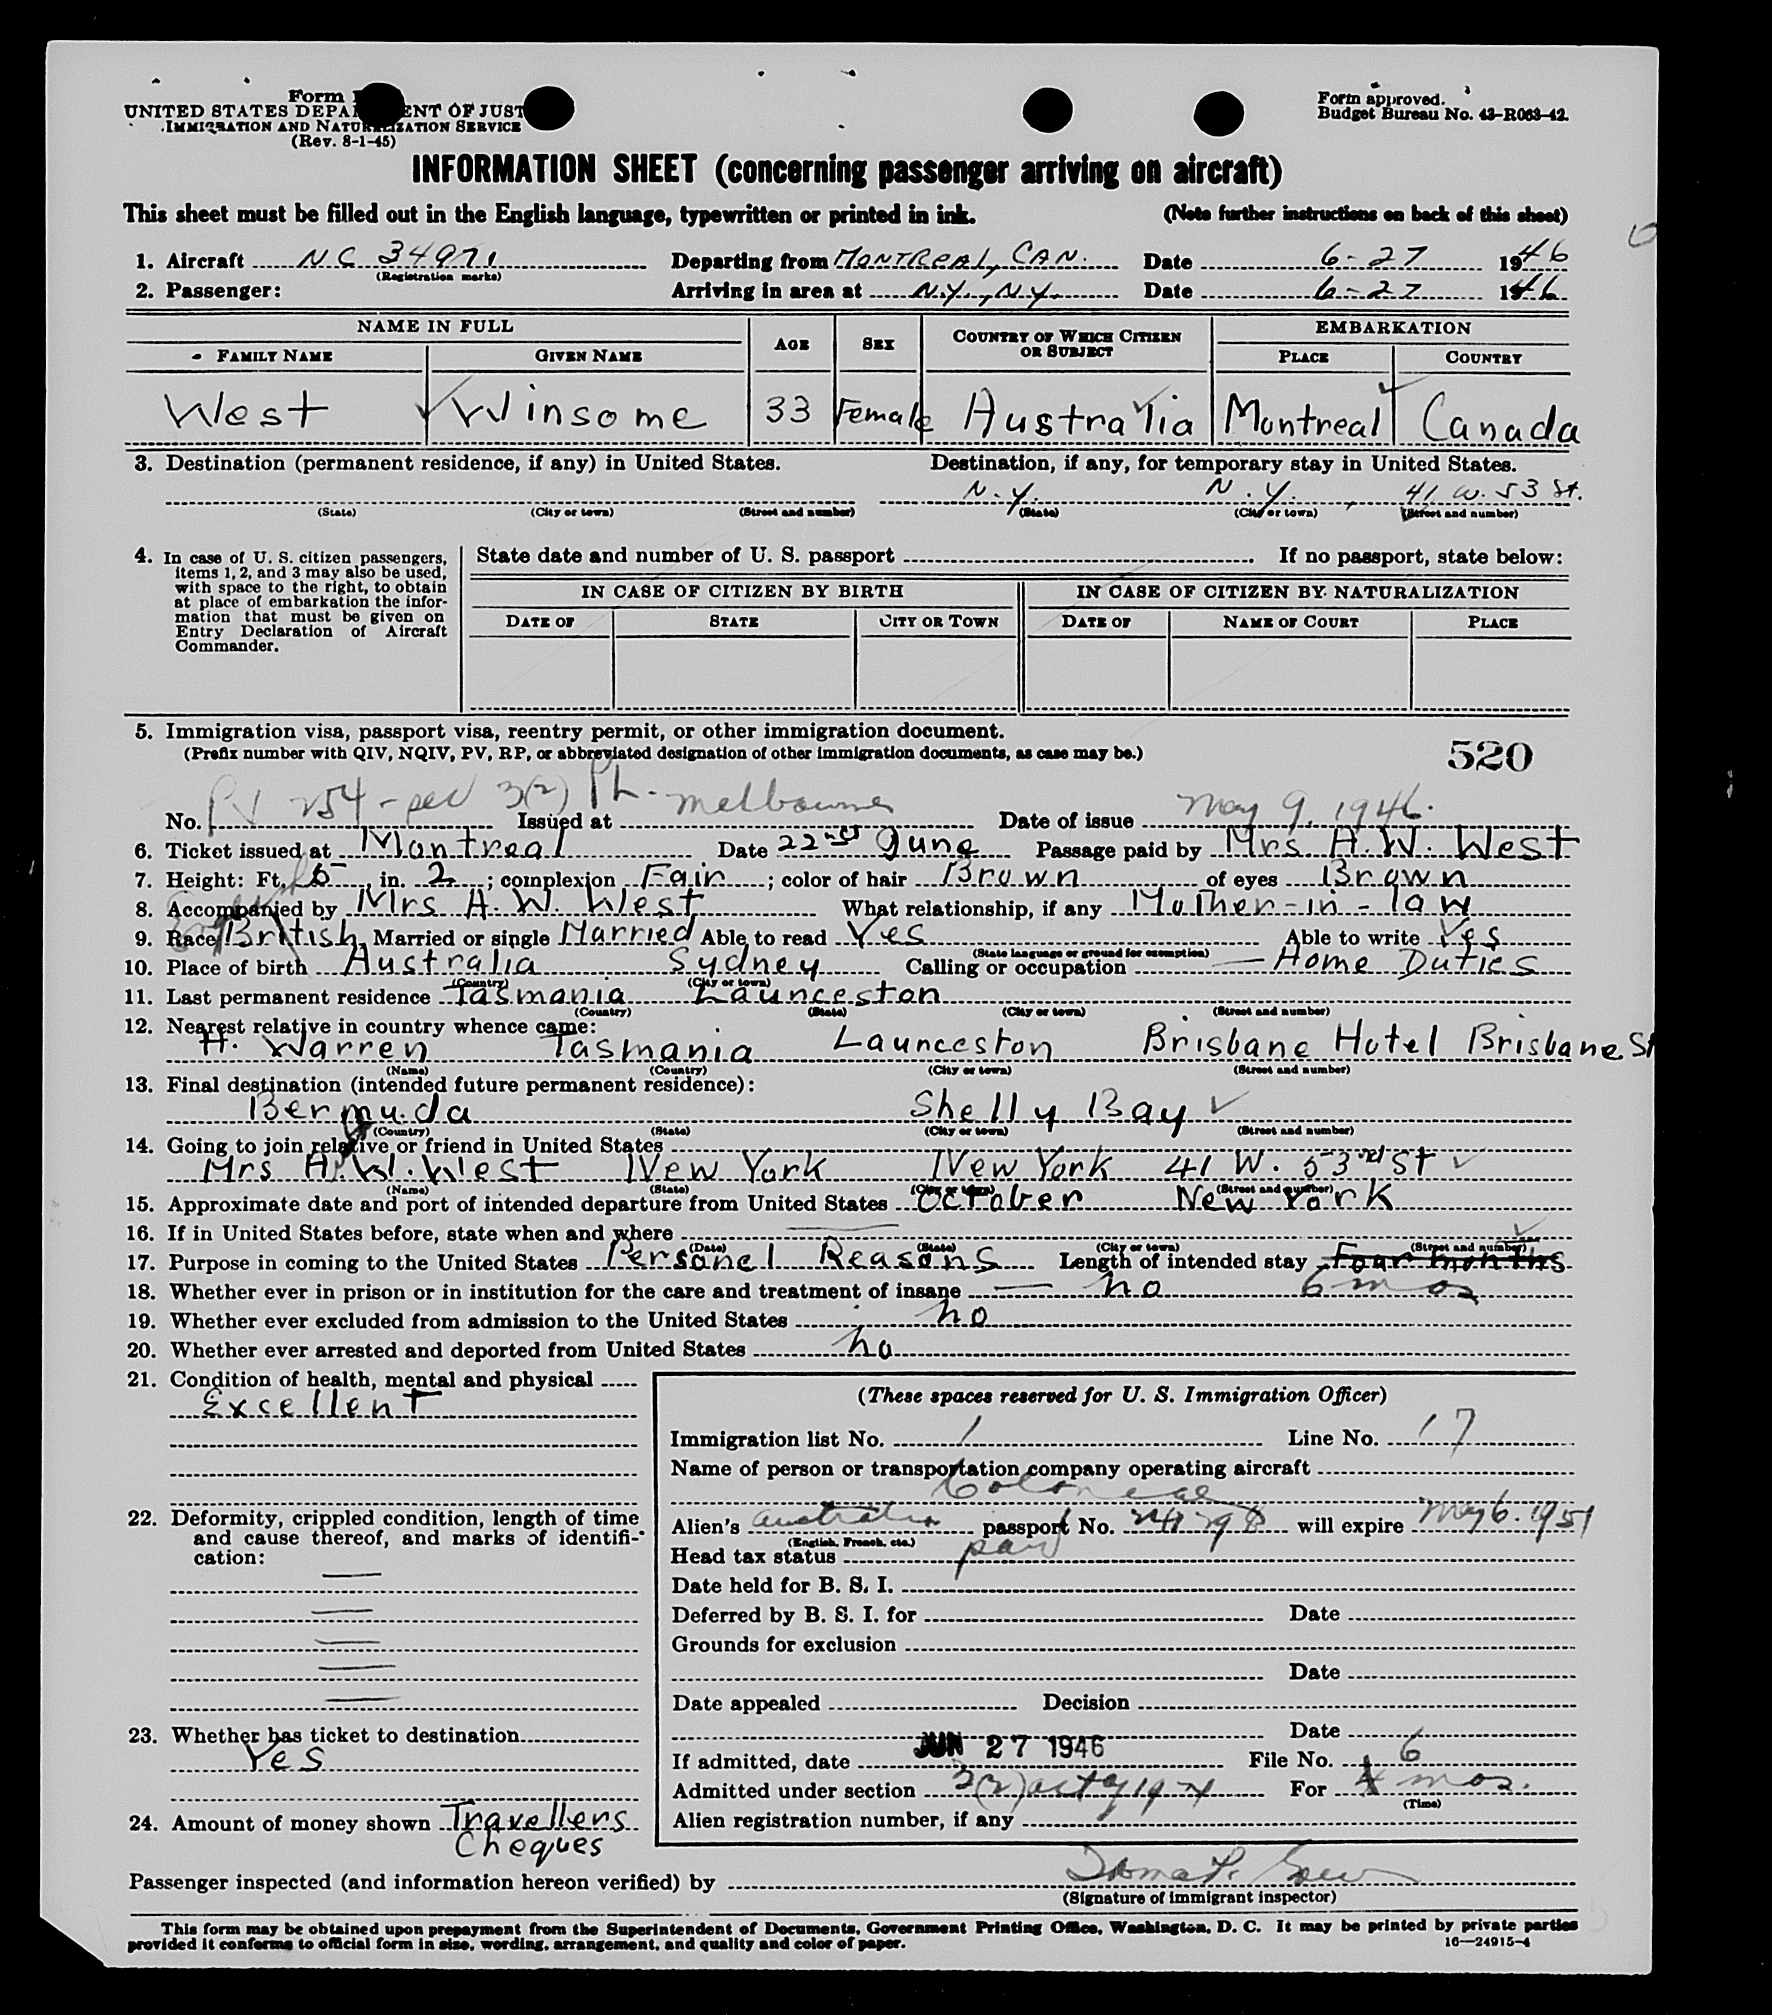 Form
UNITED STATES DEPARTMENT OF JUST
IMMIGRATION AND NATURALIZATION SERVICE
(Rev. 8-1-45)
Form approved.
Budget Bureau No. 43-R063-42.
INFORMATION SHEET (concerning passenger arriving on aircraft)
This sheet must be filled out in the English language, typewritten or printed in ink. (Note further instructions on back of this sheet)
1. Aircraft NC 34971 Departing from MONTREAL, CAN. Date 6-27 1946
(Registration marks)
2. Passenger: Arriving in area at N.Y., N.Y. Date 6-27 1946
NAME IN FULL AGE SEX COUNTRY OF WHICH CITIZEN OR SUBJECT EMBARKATION
FAMILY NAME GIVEN NAME PLACE COUNTRY
West Winsome 33 Female Australia Montreal Canada
3. Destination (permanent residence, if any) in United States. Destination, if any, for temporary stay in United States.
N.Y. N.Y. 41 W. 53 St.
(State) (City or town) (Street and number) (State) (City or town) (Street and number)
4. In case of U. S. citizen passengers, items 1, 2, and 3 may also be used, with space to the right, to obtain at place of embarkation the information that must be given on Entry Declaration of Aircraft Commander.
State date and number of U. S. passport If no passport, state below:
IN CASE OF CITIZEN BY BIRTH IN CASE OF CITIZEN BY NATURALIZATION
DATE OF STATE CITY OR TOWN DATE OF NAME OF COURT PLACE
5. Immigration visa, passport visa, reentry permit, or other immigration document.
(Prefix number with QIV, NQIV, PV, RP, or abbreviated designation of other immigration documents, as case may be.)
520
No. PV 254 - sec 3(2) Issued at Melbourne Date of issue May 9, 1946.
6. Ticket issued at Montreal Date 22nd June Passage paid by Mrs A. W. West
7. Height: Ft. 5 in. 2; complexion Fair; color of hair Brown of eyes Brown
8. Accompanied by Mrs A. W. West What relationship, if any Mother-in-law
9. Race British Married or single Married Able to read Yes Able to write Yes
(State language or ground for exemption)
10. Place of birth Australia Sydney Calling or occupation Home Duties
(Country) (City or town)
11. Last permanent residence Tasmania Launceston
(Country) (State) (City or town) (Street and number)
12. Nearest relative in country whence came:
H. Warren Tasmania Launceston Brisbane Hotel Brisbane St
(Name) (Country) (City or town) (Street and number)
13. Final destination (intended future permanent residence):
Bermuda Shelly Bay
(Country) (State) (City or town) (Street and number)
14. Going to join relative or friend in United States
Mrs A. W. West New York New York 41 W. 53rd St
(Name) (State) (City or town) (Street and number)
15. Approximate date and port of intended departure from United States October New York
16. If in United States before, state when and where
(Date) (State) (City or town) (Street and number)
17. Purpose in coming to the United States Personel Reasons Length of intended stay Four months
6 mos
18. Whether ever in prison or in institution for the care and treatment of insane no
19. Whether ever excluded from admission to the United States no
20. Whether ever arrested and deported from United States no
21. Condition of health, mental and physical
Excellent
22. Deformity, crippled condition, length of time and cause thereof, and marks of identification:
23. Whether has ticket to destination
Yes
24. Amount of money shown Travellers
Cheques
(These spaces reserved for U. S. Immigration Officer)
Immigration list No. 1 Line No. 17
Name of person or transportation company operating aircraft
Colonial
Alien's Australian passport No. will expire May 6. 1951
(English, French, etc.)
Head tax status paid
Date held for B. S. I.
Deferred by B. S. I. for Date
Grounds for exclusion
Date
Date appealed Decision
Date
If admitted, date JUN 27 1946 File No.
Admitted under section 3(2) act of 1924 For 6 mos.
(Time)
Alien registration number, if any
Passenger inspected (and information hereon verified) by
(Signature of immigrant inspector)
This form may be obtained upon prepayment from the Superintendent of Documents, Government Printing Office, Washington, D. C. It may be printed by private parties
provided it conforms to official form in size, wording, arrangement, and quality and color of paper.
16—24915-4